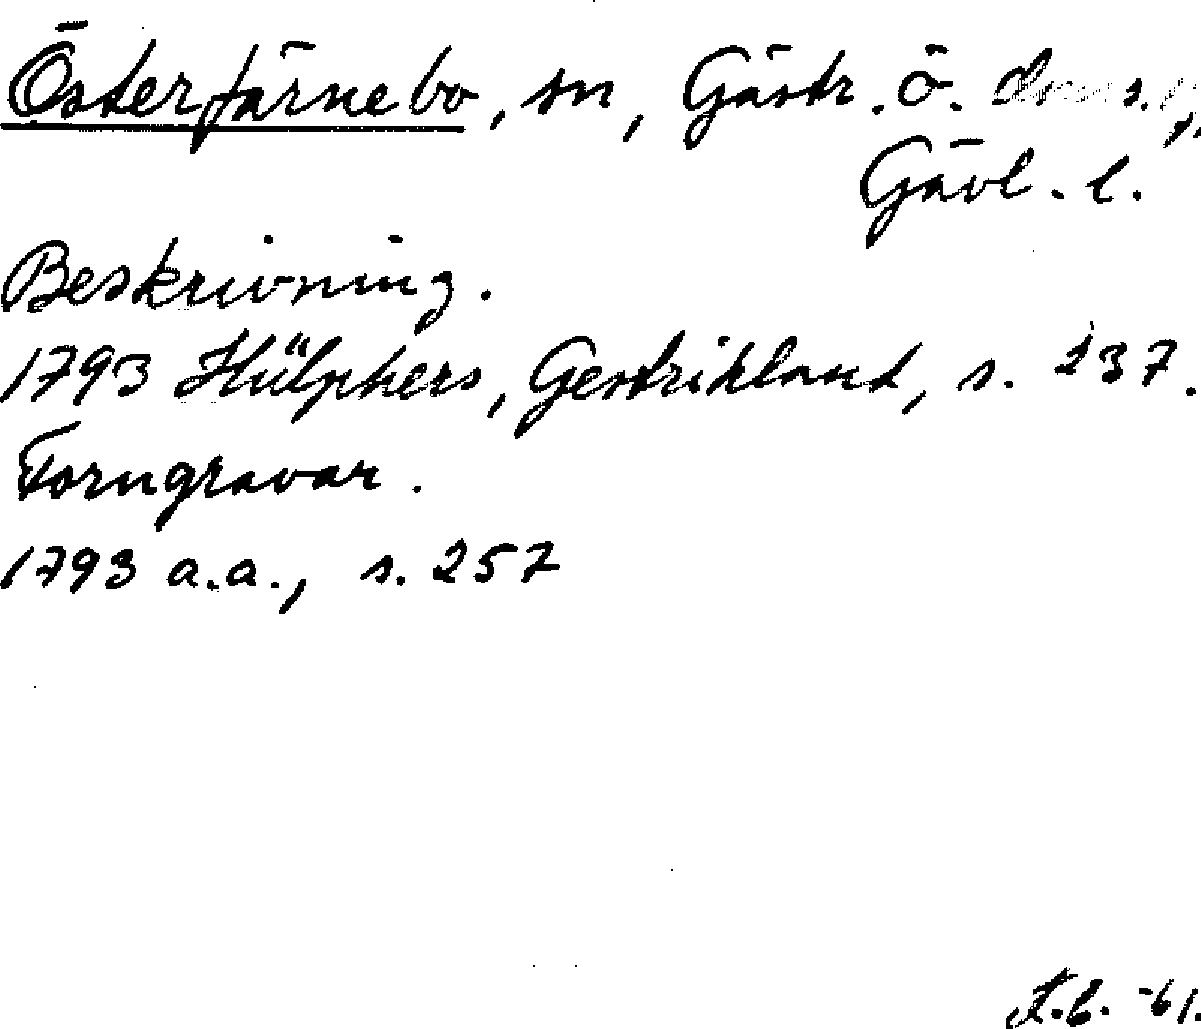 Österfärnebo, sn, Gästr. ö. doms.,
Gävl. l.
Beskrivning.
1793 Hülphers, Gestrikland, s. 237.
Forngravar.
1793 a.a., s. 257
-61.